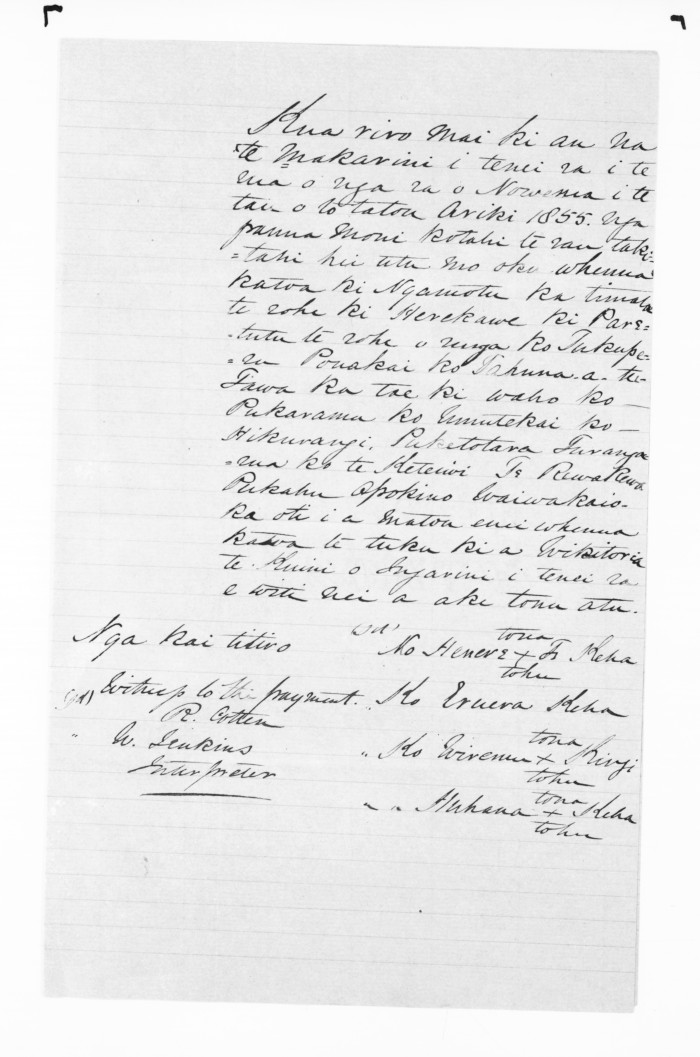 Kua riro mai ki au na
te Makarini i tenei ra i te
rua o nga ra o Nowema i te
tau o to tatou Ariki 1855. Nga
pauna Moni kotahi te rau taki=
=tahi hei utu mo oku whenua
katoa ki Ngamotu ka timata
te rohe ki Herekawe ki Pare=
=tutu te rohe o runga ko Tukupe=
=ru Pouakai ko Tahuna-a-te-
Tawa ka tae ki waho ko—
Pukarama ko Umutekai ko—
Hikurangi. Puketotara Turanga
=rua ko te Keteiwi Te Rewa Rewa
Pukahu Apokino Waiwakaio.
ka oti i a Matou enei whenua
katoa te tuku ki a Wikitoria
te Kuini o Ingarini i tenei ra
e witi nei a ake tonu atu.
Nga kai titiro
(sd) No Henere tona x tohu Keha
(sgd) Witness to the payment. Ko Eruera Keha
R. Cotten
" W. Jenkins
Interpreter
" Ko Wiremu tona x tohu Kingi
" " Huhana tona x tohu Keha